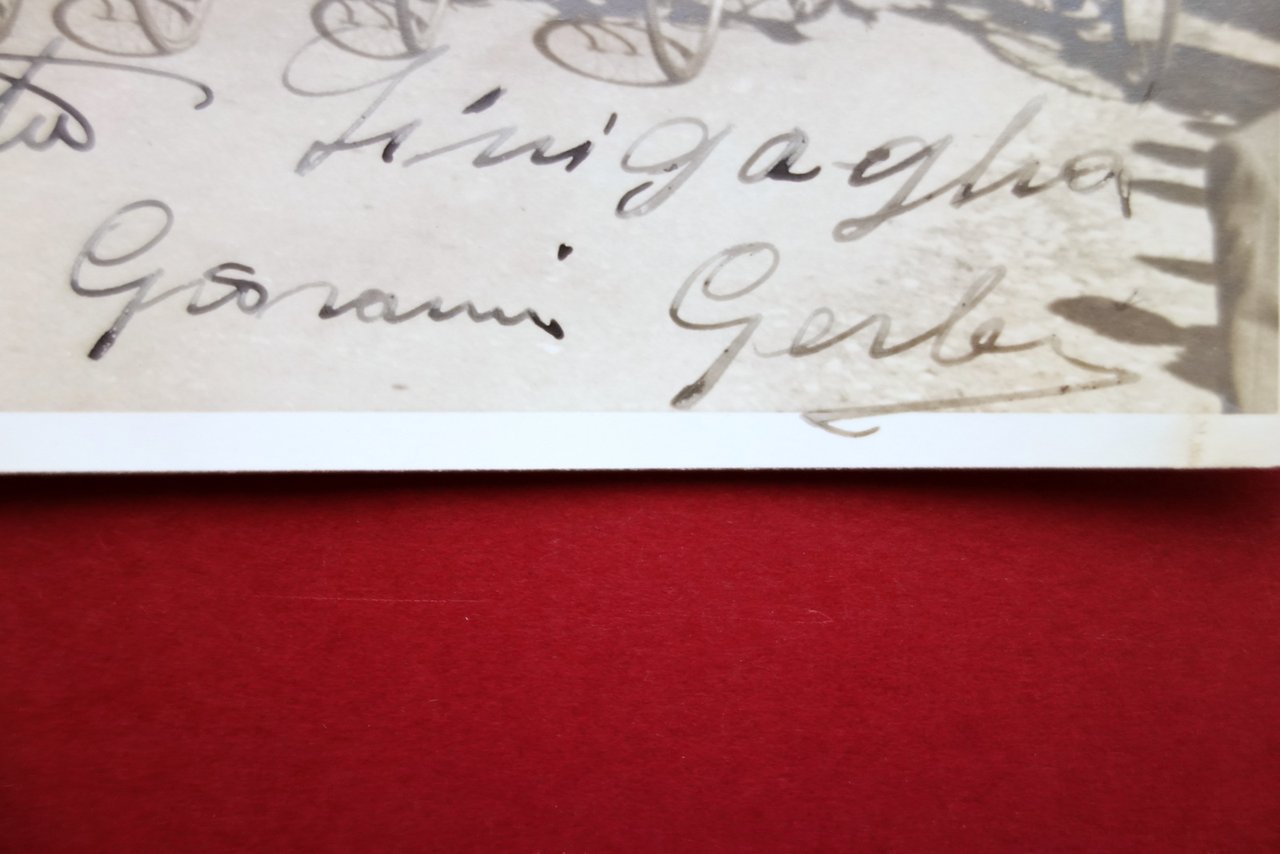 Sinigaglia
Giovanni Gerbi